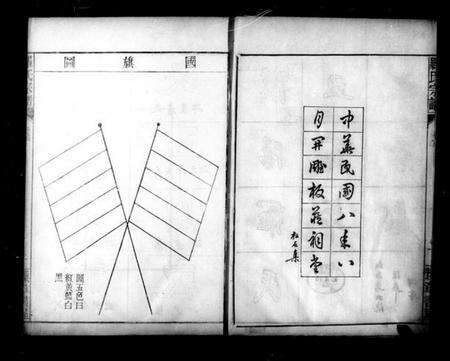 中華民國八年八
月開雕板藏祠堂
國旗圖
圖五色曰
紅黃藍白
黑